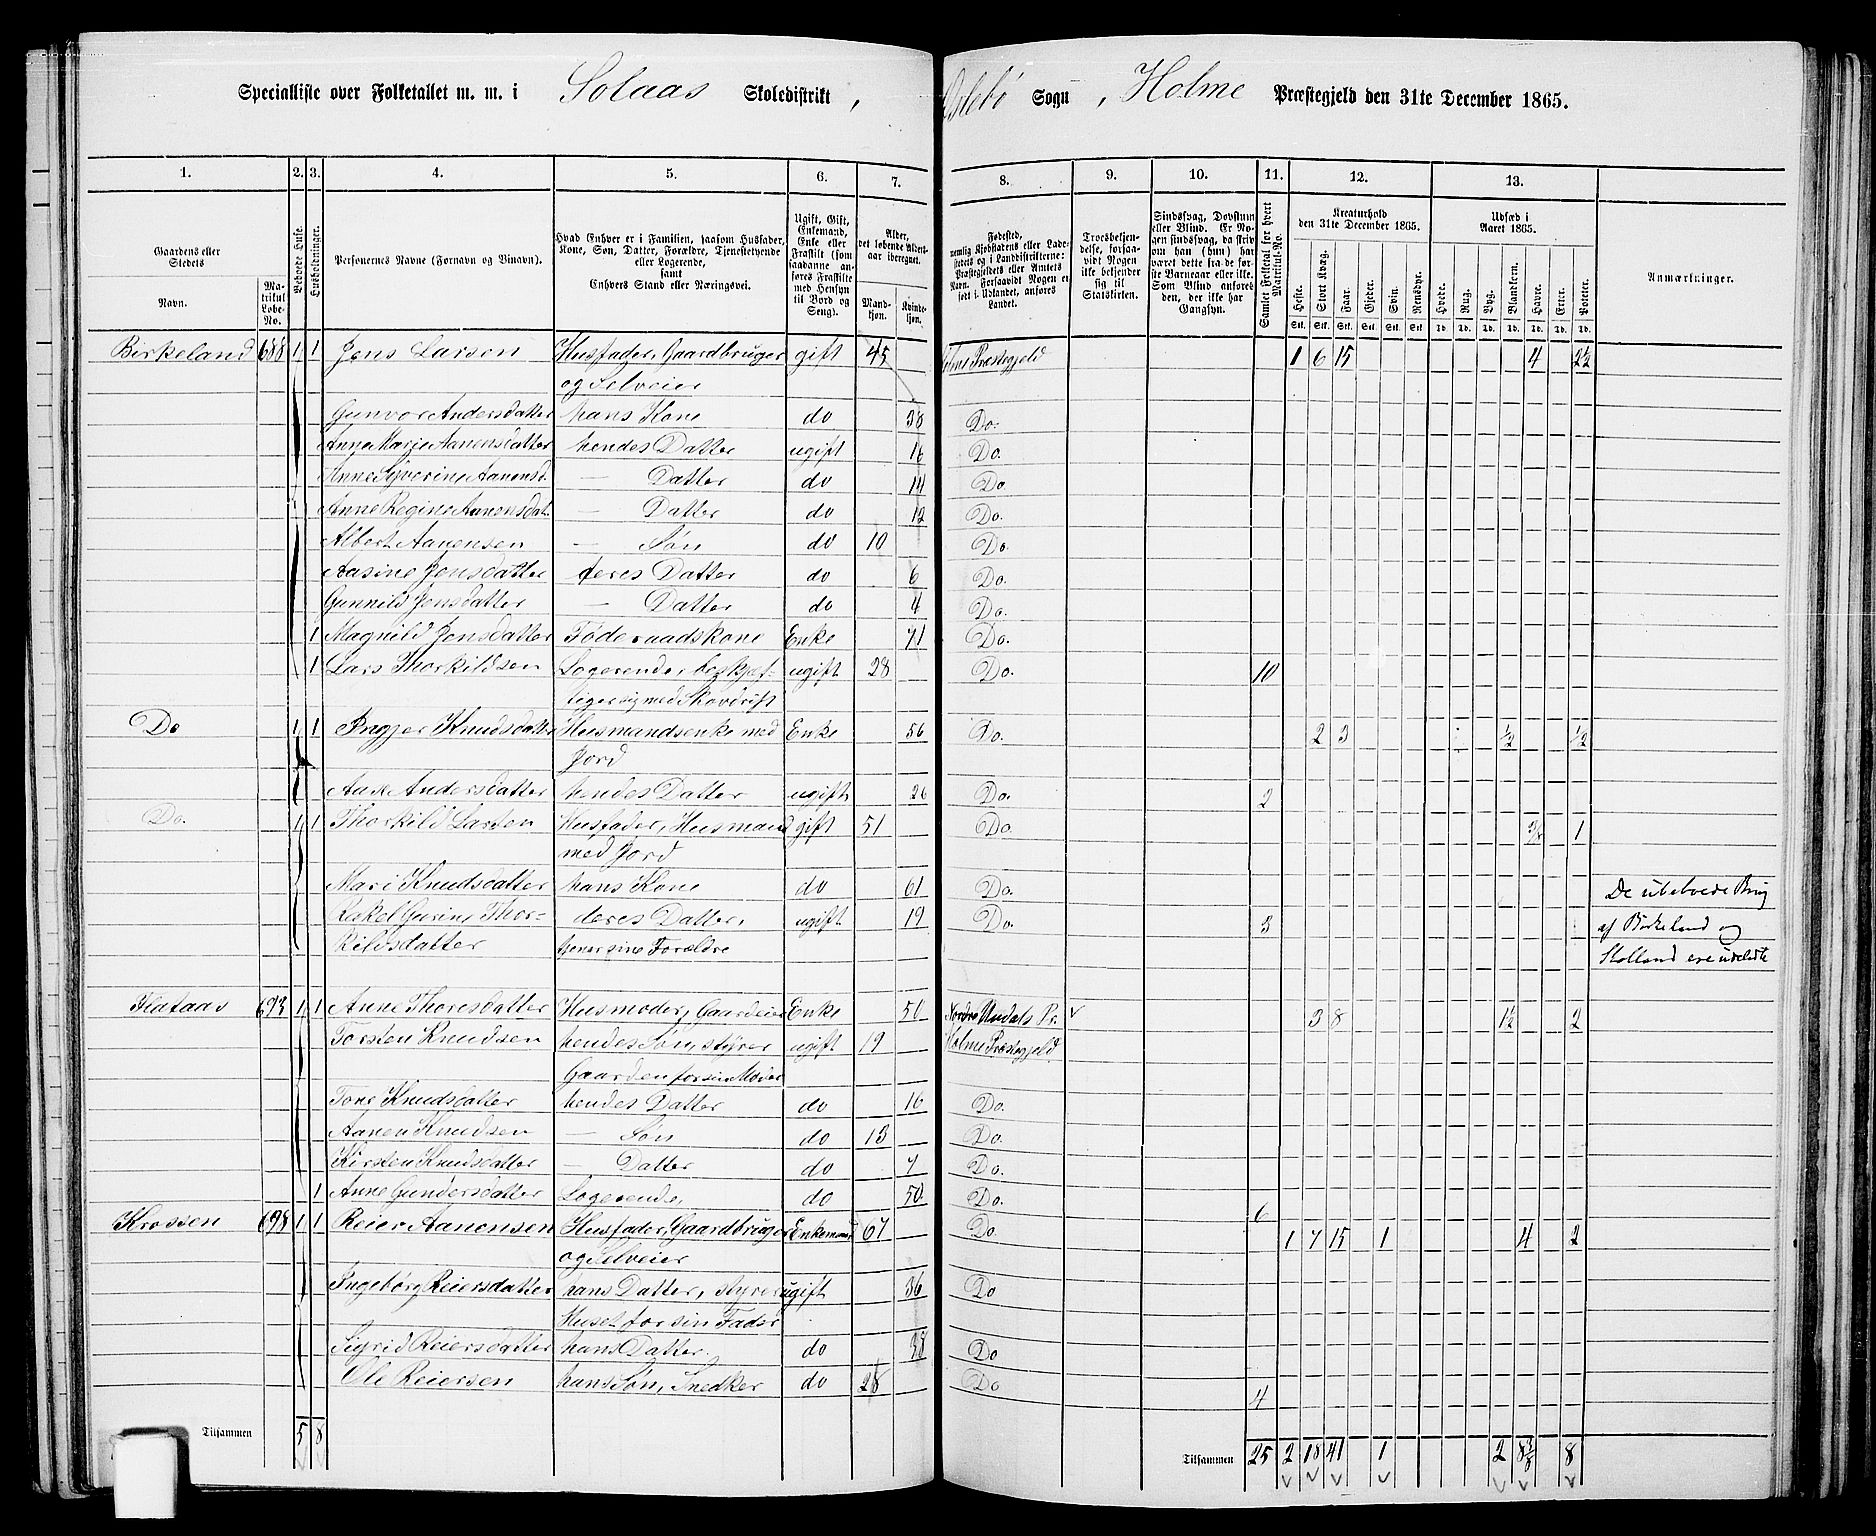 Specialliste over Folketallet m. m. i Solaas Skoledistrikt, Øslebø Sogn, Holme Præstegjeld den 31te December 1865.
1. 2. 3. 4. 5. 6. 7. 8. 9. 10. 11. 12. 13.
Gaardens eller Stedets
Navn.
Matrikul Løbe-No.
Beboede Huse.
Husholdninger.
Personernes Navne (Fornavn og Tilnavn).
Hvad Enhver er i Familien, saasom Husfader, Kone, Søn, Datter, Forældre, Tjenestetyende eller Logerende, samt Enhvers Stand eller Næringsvei.
Ugift, Gift, Enkemand, Enke eller Fraskilt (som saadanne anføres Fraskilte med Hensyn til Bord og Seng).
Alder, det løbende Alders-aar iberegnet.
Mandkjøn.
Kvindekjøn.
Fødested, nemlig Kjøbstadens eller Ladestedets og i Landdistrikterne: Præstegjeldets eller Amtets Navn. Forsaavidt Nogen er født i Udlandet, anføres Landet.
Troesbekjendelse, forsaavidt Nogen ikke bekjender sig til Statskirken.
Sindssvag, Døvstum eller Blind. Er Nogen sindssvag, da skriv om han (hun) har været dette fra de første Barneaar eller ikke. Som Blind anføres den, der ikke har Gangsyn.
Samlet Folketal for hvert Matrikul-No.
Kreaturhold den 31te December 1865.
Heste. Stort Kvæg. Faar. Gjeder. Svin. Rensdyr.
Stk. Stk. Stk. Stk. Stk. Stk.
Udsæd i Aaret 1865.
Hvede. Rug. Byg. Blandkorn. Havre. Erter. Poteter.
Td. Td. Td. Td. Td. Td. Td.
Anmærkninger.
Birkeland 688 1 1 Jens Larsen Husfader, Gaardbruger gift 45 Holme Præstegjeld 1 6 15 4 2½
og Selveier
Gunvor Andersdatter hans Kone do 38 Do.
Anne Marie Aanensdatter hendes Datter ugift 16 Do.
Anne Syverine Aanensd. — Datter do 14 Do.
Anne Regine Aanensdat. — Datter do 12 Do.
Albert Aanensen — Søn do 10 Do.
Aasine Jensdatter deres Datter do 6 Do.
Gunnild Jensdatter — Datter do 4 Do.
1 Magnild Jensdatter Føderaadskone Enke 71 Do.
1 Lars Thorkildsen Logerende, beskjæf- ugift 28 Do. 10
tiger sig med Skovdrift
Do 1 1 Ingjer Knudsdatter Husmandsenke med Enke 56 Do. 2 3 ½ ½
Jord
Aase Andersdatter hendes Datter ugift 26 Do. 2
Do. 1 1 Thorkild Larsen Husfader, Husmand gift 51 Do. 3/8 1
med Jord
Mari Knudsdatter hans Kone do 61 Do.
Rakel Gurine Thor- deres Datter, ugift 19 Do. 3
kildsdatter tjener sine Forældre
De ubeboede Brug
af Birkeland og
Stolland ere udeladte
Flataas 693 1 1 Anne Thoresdatter Husmoder, Gaardeier Enke 50 Nordre Undals Pr. v 3 8 1½ 2
Torsten Knudsen hendes Søn, styrer ugift 19 Holme Præstegjeld
Gaarden for sin Moder
Tone Knudsdatter hendes Datter do 16 Do.
Aanen Knudsen — Søn do 13 Do.
Kirsten Knudsdatter — Datter do 7 Do.
1 Anne Gundersdatter Logerende, do 50 Do. 6
Krossen 698 1 1 Reier Aanensen Husfader, Gaardbruger Enkemand 67 Do. 1 7 15 1 4 2
og Selveier
Ingebørg Reiersdatter hans Datter, styrer ugift 36 Do
Huset for sin Fader
Sigrid Reiersdatter hans Datter. do 38 Do
Ole Reiersen hans Søn, Snedker do 28 Do 4
Tilsammen 5 8 Tilsammen 25 2 18 41 1 2 8 3/8 8